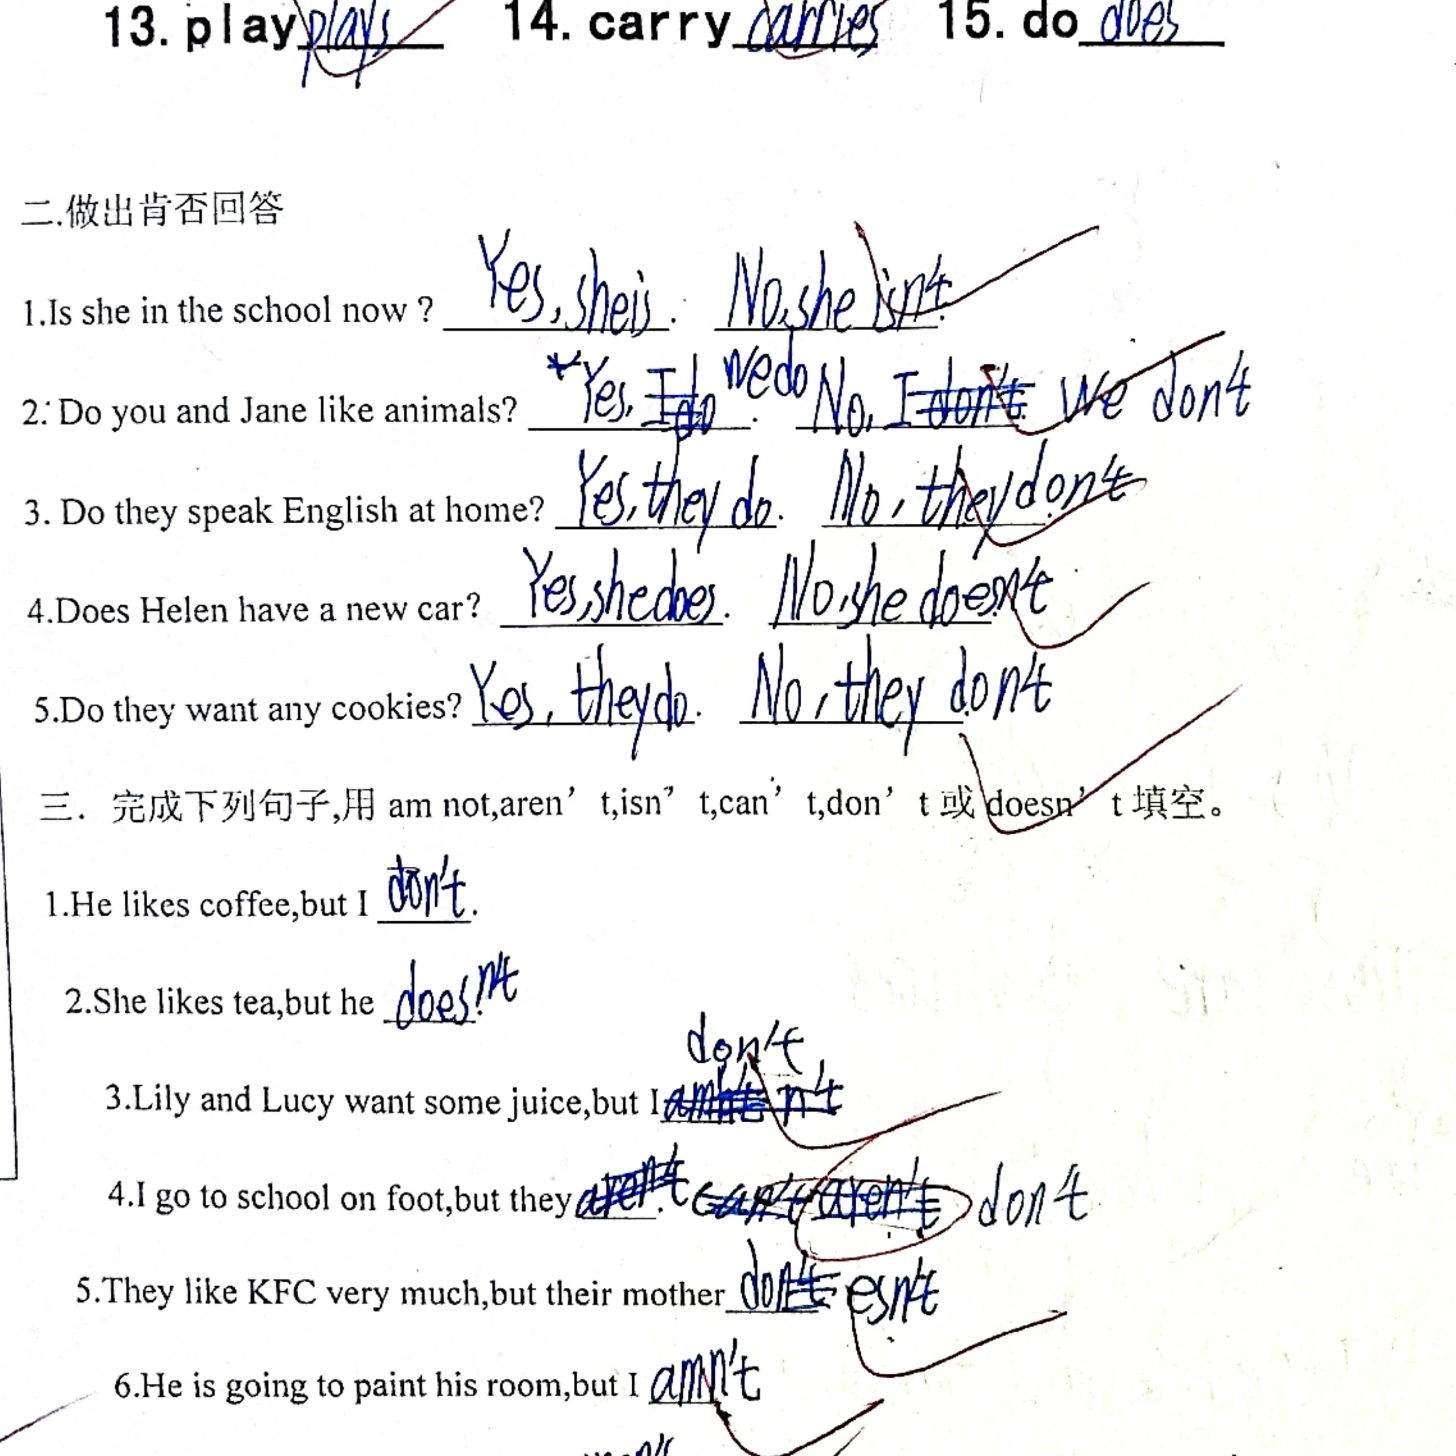 13. play plays 14. carry carries 15. do does
二.做出肯否回答
1.Is she in the school now ? Yes, she is. No, she isn't.
2. Do you and Jane like animals? Yes, I do we do. No, I don't. we don't
3. Do they speak English at home? Yes, they do. No, they don't
4.Does Helen have a new car? Yes, she does. No, she doesn't
5.Do they want any cookies? Yes, they do. No, they don't
三. 完成下列句子,用 am not,aren't,isn't,can't,don't 或 doesn't 填空。
1.He likes coffee,but I don't.
2.She likes tea,but he doesn't
don't
3.Lily and Lucy want some juice,but I n't
4.I go to school on foot,but they aren't. can't aren't don't
5.They like KFC very much,but their mother don't esn't
6.He is going to paint his room,but I amn't